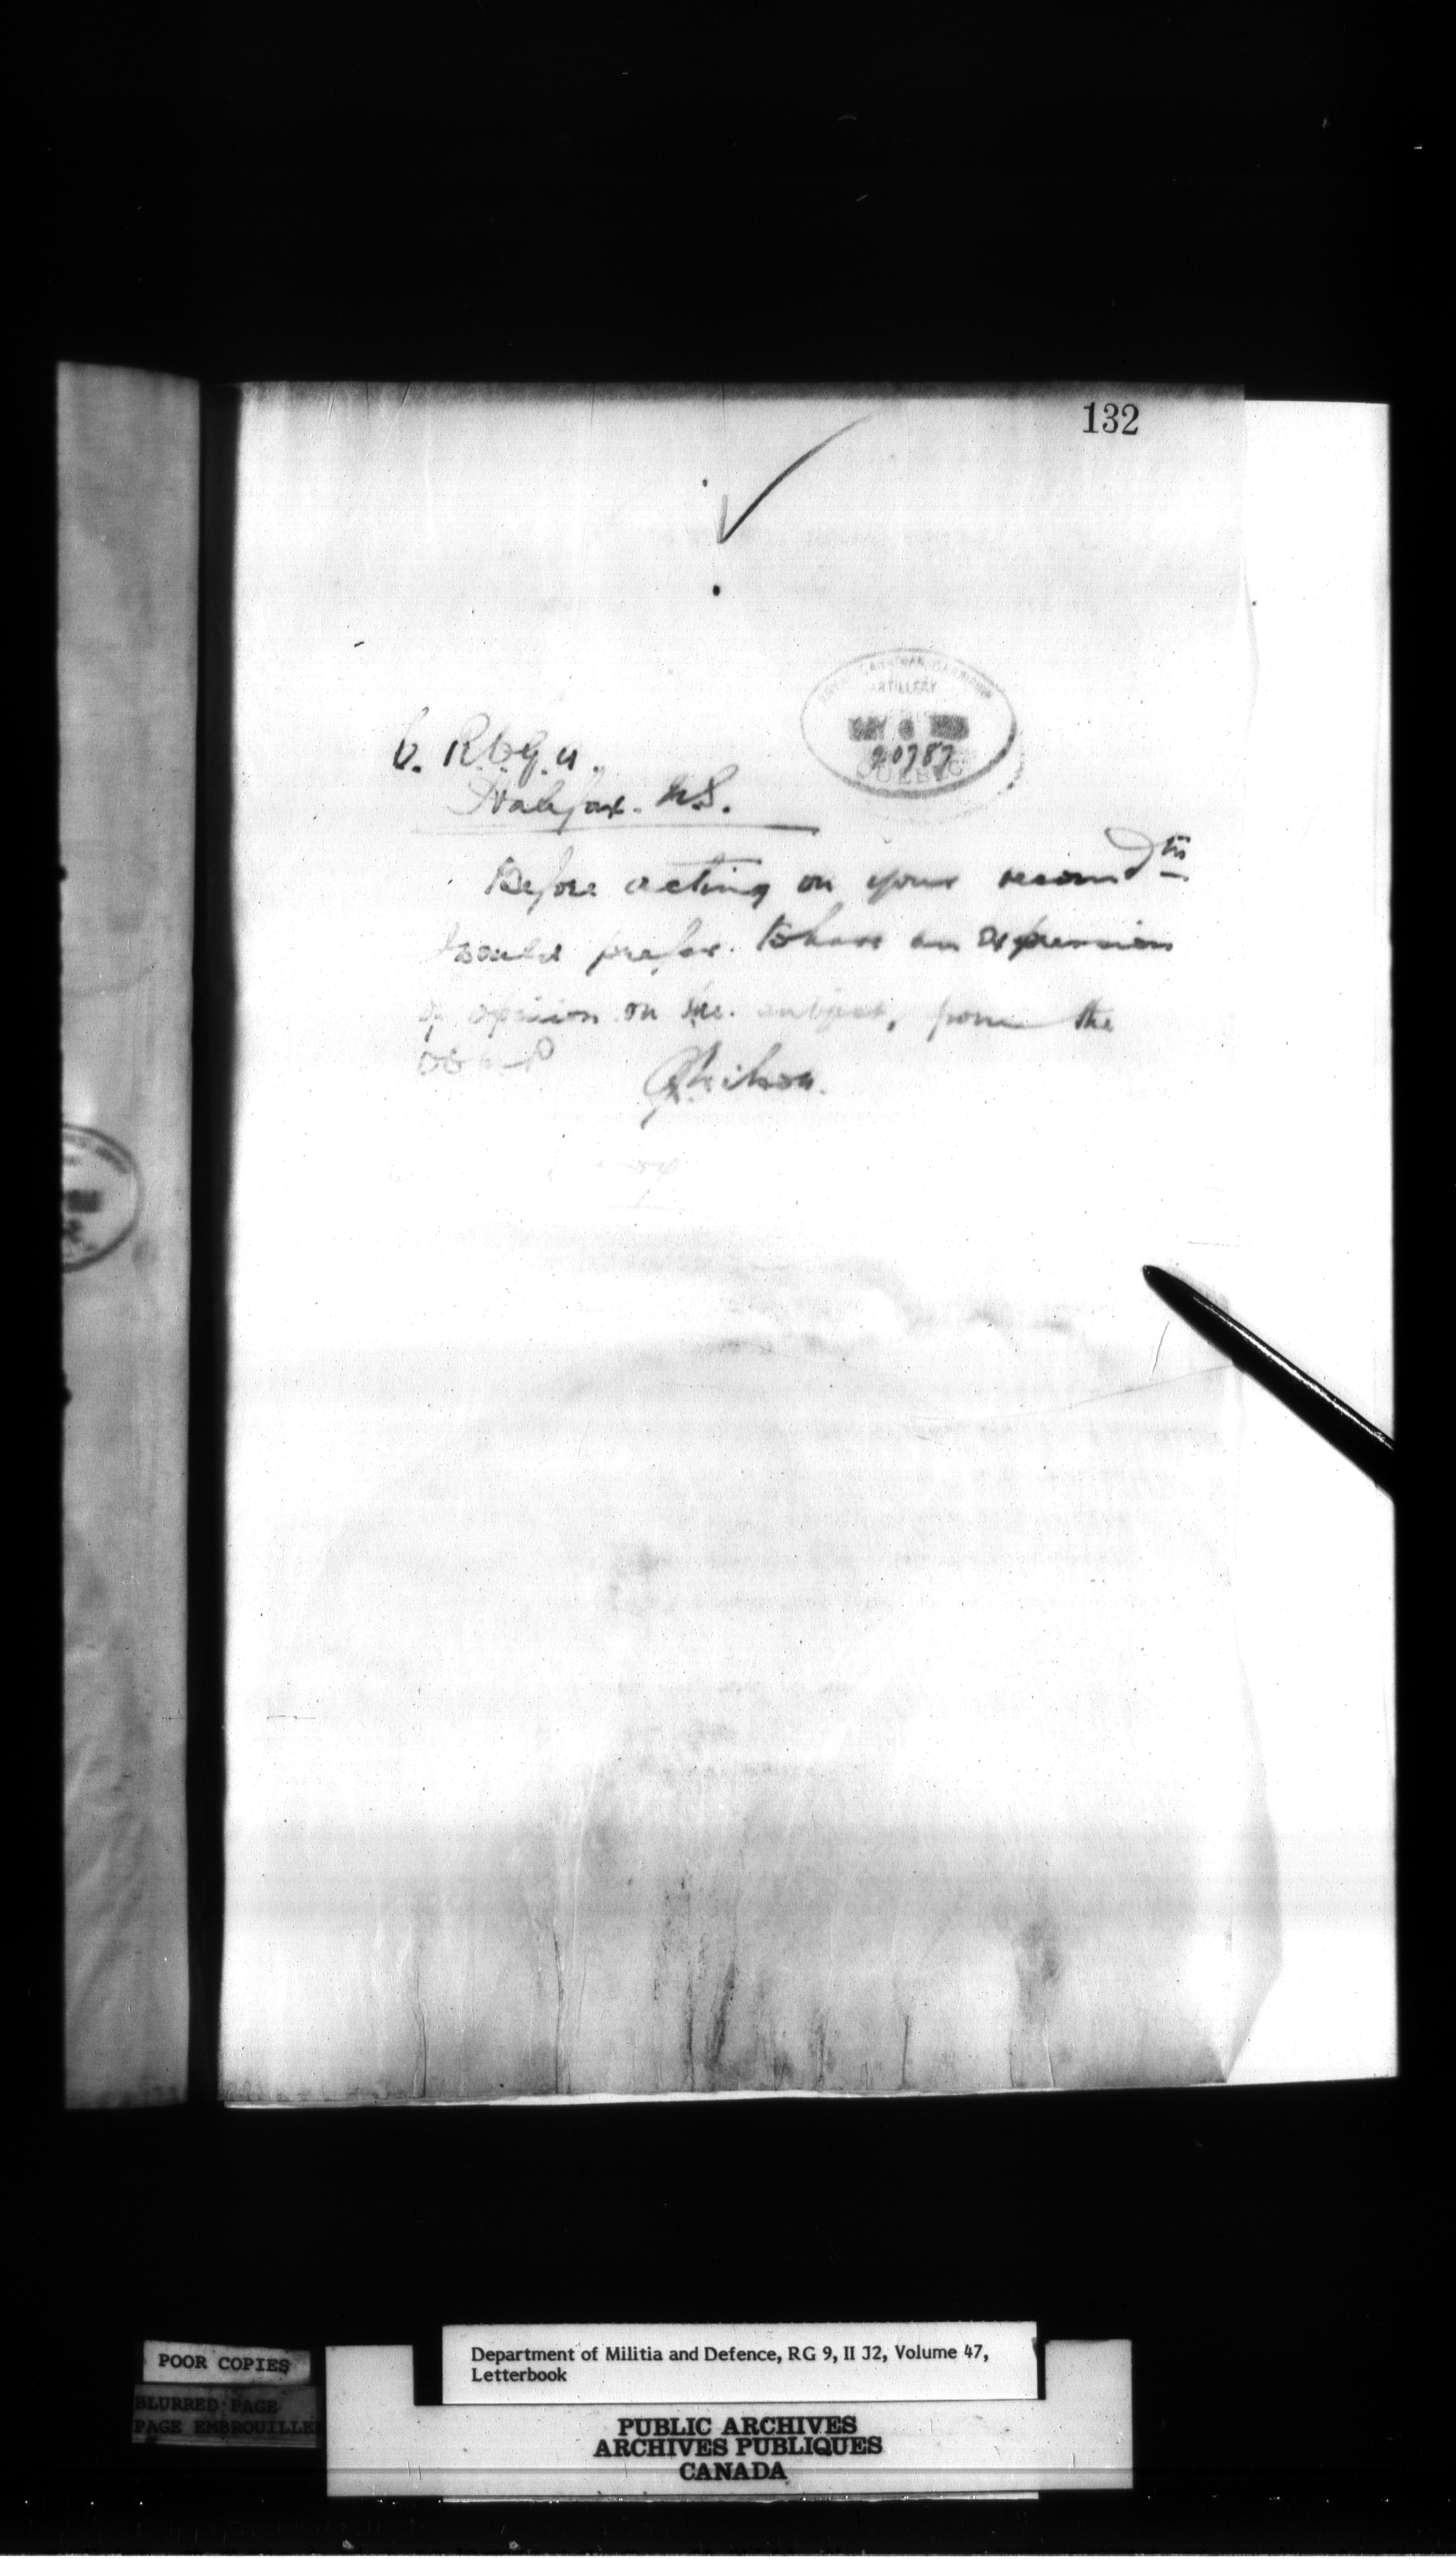 132
ROYAL CANADIAN GARRISON
ARTILLERY
MAY 6
20787
QUEBEC
C. R.C.G.A.
Halifax. N.S.
Before acting on your recomdtn
I would prefer to have an expression
of opinion on the subject, from the
POOR COPIES
BLURRED PAGE
PAGE EMBROUILLEE
Department of Militia and Defence, RG 9, II J2, Volume 47,
Letterbook
PUBLIC ARCHIVES
ARCHIVES PUBLIQUES
CANADA